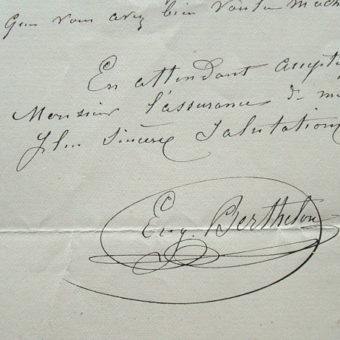 que vous avez bien voulu
En attendant
Monsieur l'assurance de
plus sincères salutations
Eug. Berthelon